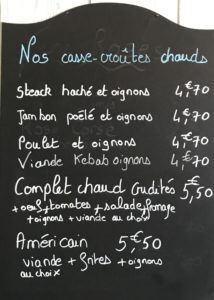 Nos casse-croûtes chauds
Steack haché et oignons 4,€70
Jambon poêlé et oignons 4,€70
Poulet et oignons 4,€70
Viande Kebab oignons 4,€70
Complet chaud Crudités 5,€50
+ oeuf + tomates + salade + fromage
+ oignons + viande au choix
Américain 5,€50
viande + frites + oignons
au choix